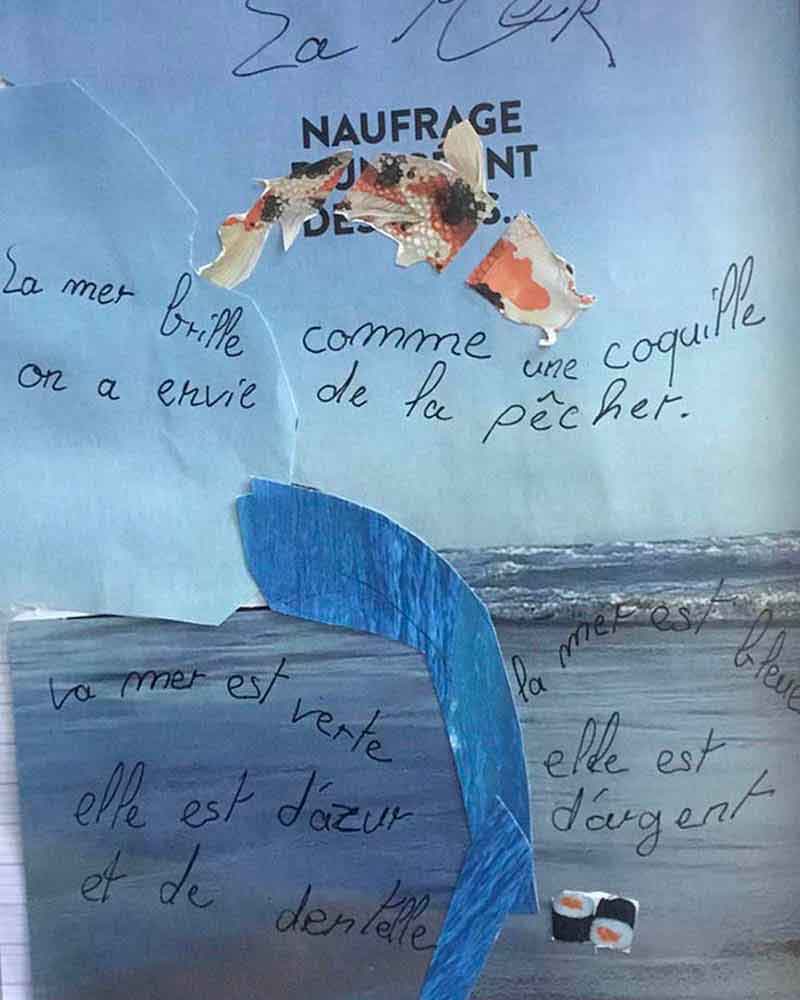 La MeR
NAUFRAGE
NT
DES
La mer brille comme une coquille
on a envie de la pêcher.
la mer est verte
elle est d'azur
et de dentelle
la mer est bleue
elle est
d'argent